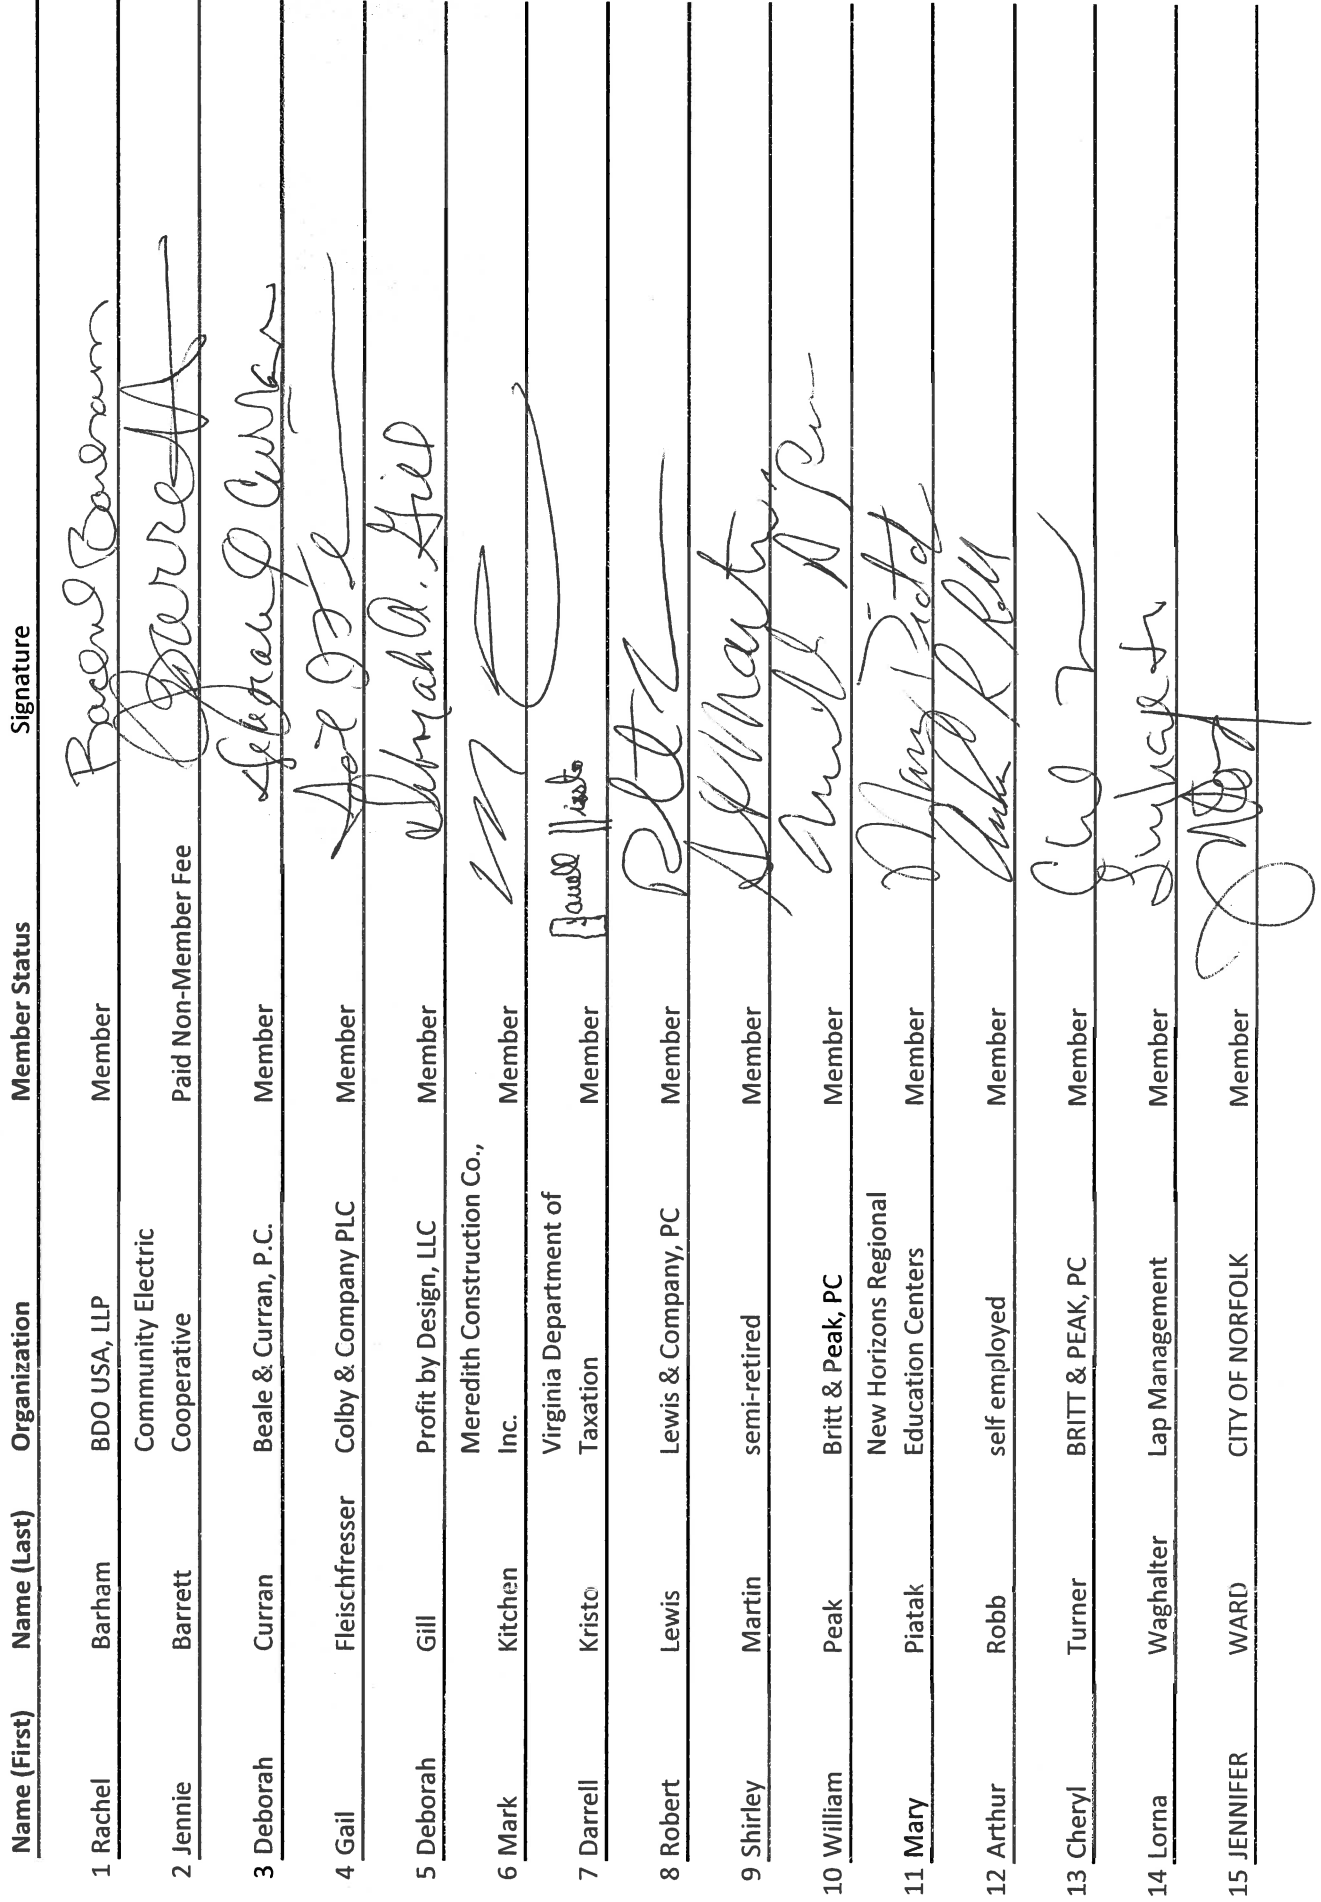 Name (First) Name (Last) Organization Member Status Signature
1 Rachel Barham BDO USA, LLP Member Rachel Barham
Community Electric
2 Jennie Barrett Cooperative Paid Non-Member Fee JBarrett
3 Deborah Curran Beale & Curran, P.C. Member Deborah Curran
4 Gail Fleischfresser Colby & Company PLC Member
5 Deborah Gill Profit by Design, LLC Member Deborah A. Gill
Meredith Construction Co.,
6 Mark Kitchen Inc. Member
Virginia Department of
7 Darrell Kristo Taxation Member Darrell Kristo
8 Robert Lewis Lewis & Company, PC Member
9 Shirley Martin semi-retired Member
10 William Peak Britt & Peak, PC Member
New Horizons Regional
11 Mary Piatak Education Centers Member Mary Piatak
12 Arthur Robb self employed Member
13 Cheryl Turner BRITT & PEAK, PC Member
14 Lorna Waghalter Lap Management Member
15 JENNIFER WARD CITY OF NORFOLK Member